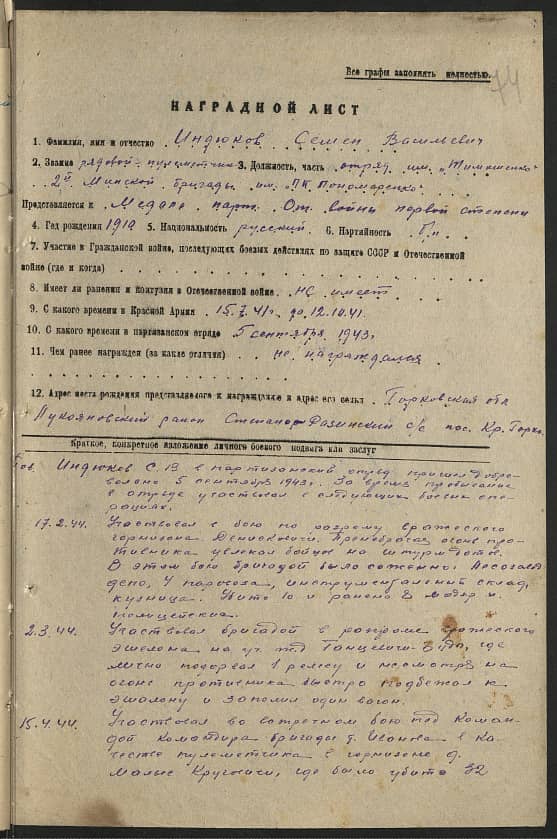 Все графы заполнять полностью.
74
НАГРАДНОЙ ЛИСТ
1. Фамилия, имя и отчество Индюков Семен Васильевич
2. Звание рядовой-пулеметчик 3. Должность, часть отряд им. "Тимошенко"
2й Минской бригады им. "ПК Пономаренко"
Представляется к Медали парт. От. войны первой степени
4. Год рождения 1919 5. Национальность русский 6. Партийность б/п
7. Участие в Гражданской войне, последующих боевых действиях по защите СССР и Отечественной
войне (где и когда)
8. Имеет ли ранения и контузии в Отечественной войне не имеет
9. С какого времени в Красной Армии 15.7.41г. до 12.10.41
10. С какого времени в партизанском отряде 5 сентября 1943г
11. Чем ранее награжден (за какие отличия) не награждался
12. Адрес места рождения представляемого к награждению и адрес его семьи Горковская обл
Лукояновский район Степано-Разинский с/с пос. Кр. Горка
Краткое, конкретное изложение личного боевого подвига или заслуг
Тов. Индюков С. В в партизанский отряд пришел добро-
вольно 5 сентября 1943г. За время пребывания
в отряде участвовал в следующих боевых опе-
рациях.
17.2.44. Участвовал в бою по разгрому вражеского
гарнизона Денисковичи. Пренебрегая огнем про-
тивника увлекал бойцов на штурм
В этом бою бригадой было сожжено: Лесозавод
депо, 4 паровоза, инструментальный склад,
кузница. Убито 10 и ранено 8 мадяр и
полицейских.
2.3.44. Участвовал бригадой в разгроме вражеского
эшелона на уч. ж.д Ганцевичи- где
лично подорвал 1 рельсу и несмотря на
огонь противника быстро подбежал к
эшалону и запалил один вагон.
15.4.44. Участвовал во встречном бою под Коман-
дой командира бригады т. Иванова в ка-
честве пулеметчика в гарнизоне д.
Малые Круговичи, где было убито 32